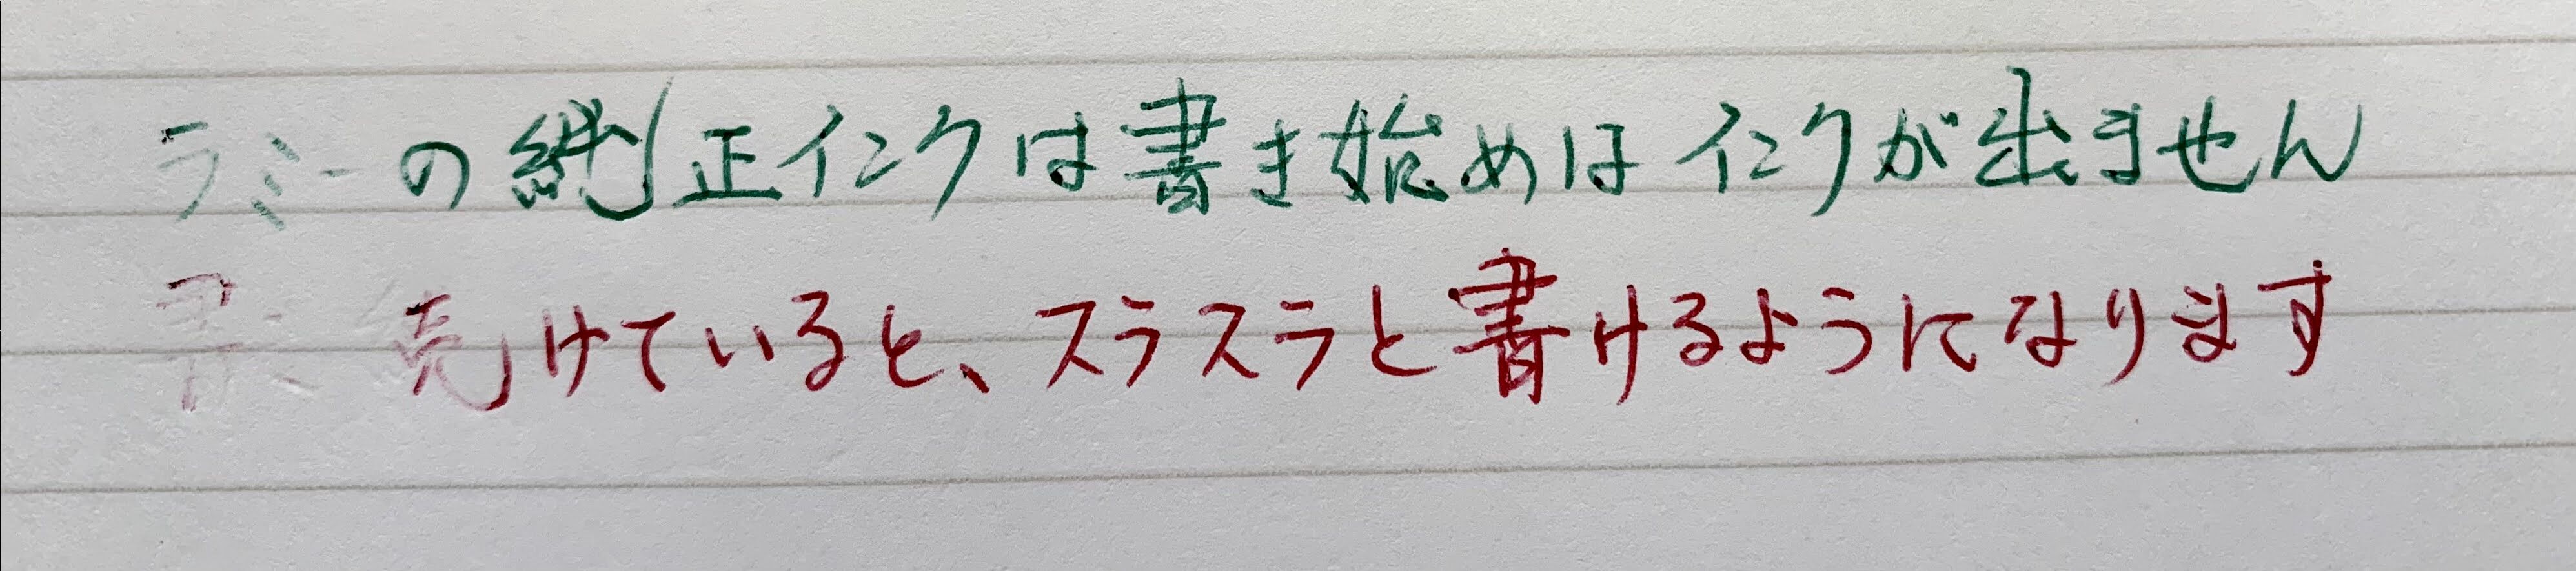 ラミーの純正インクは書き始めはインクが出ません
書き続けていると、スラスラと書けるようになります